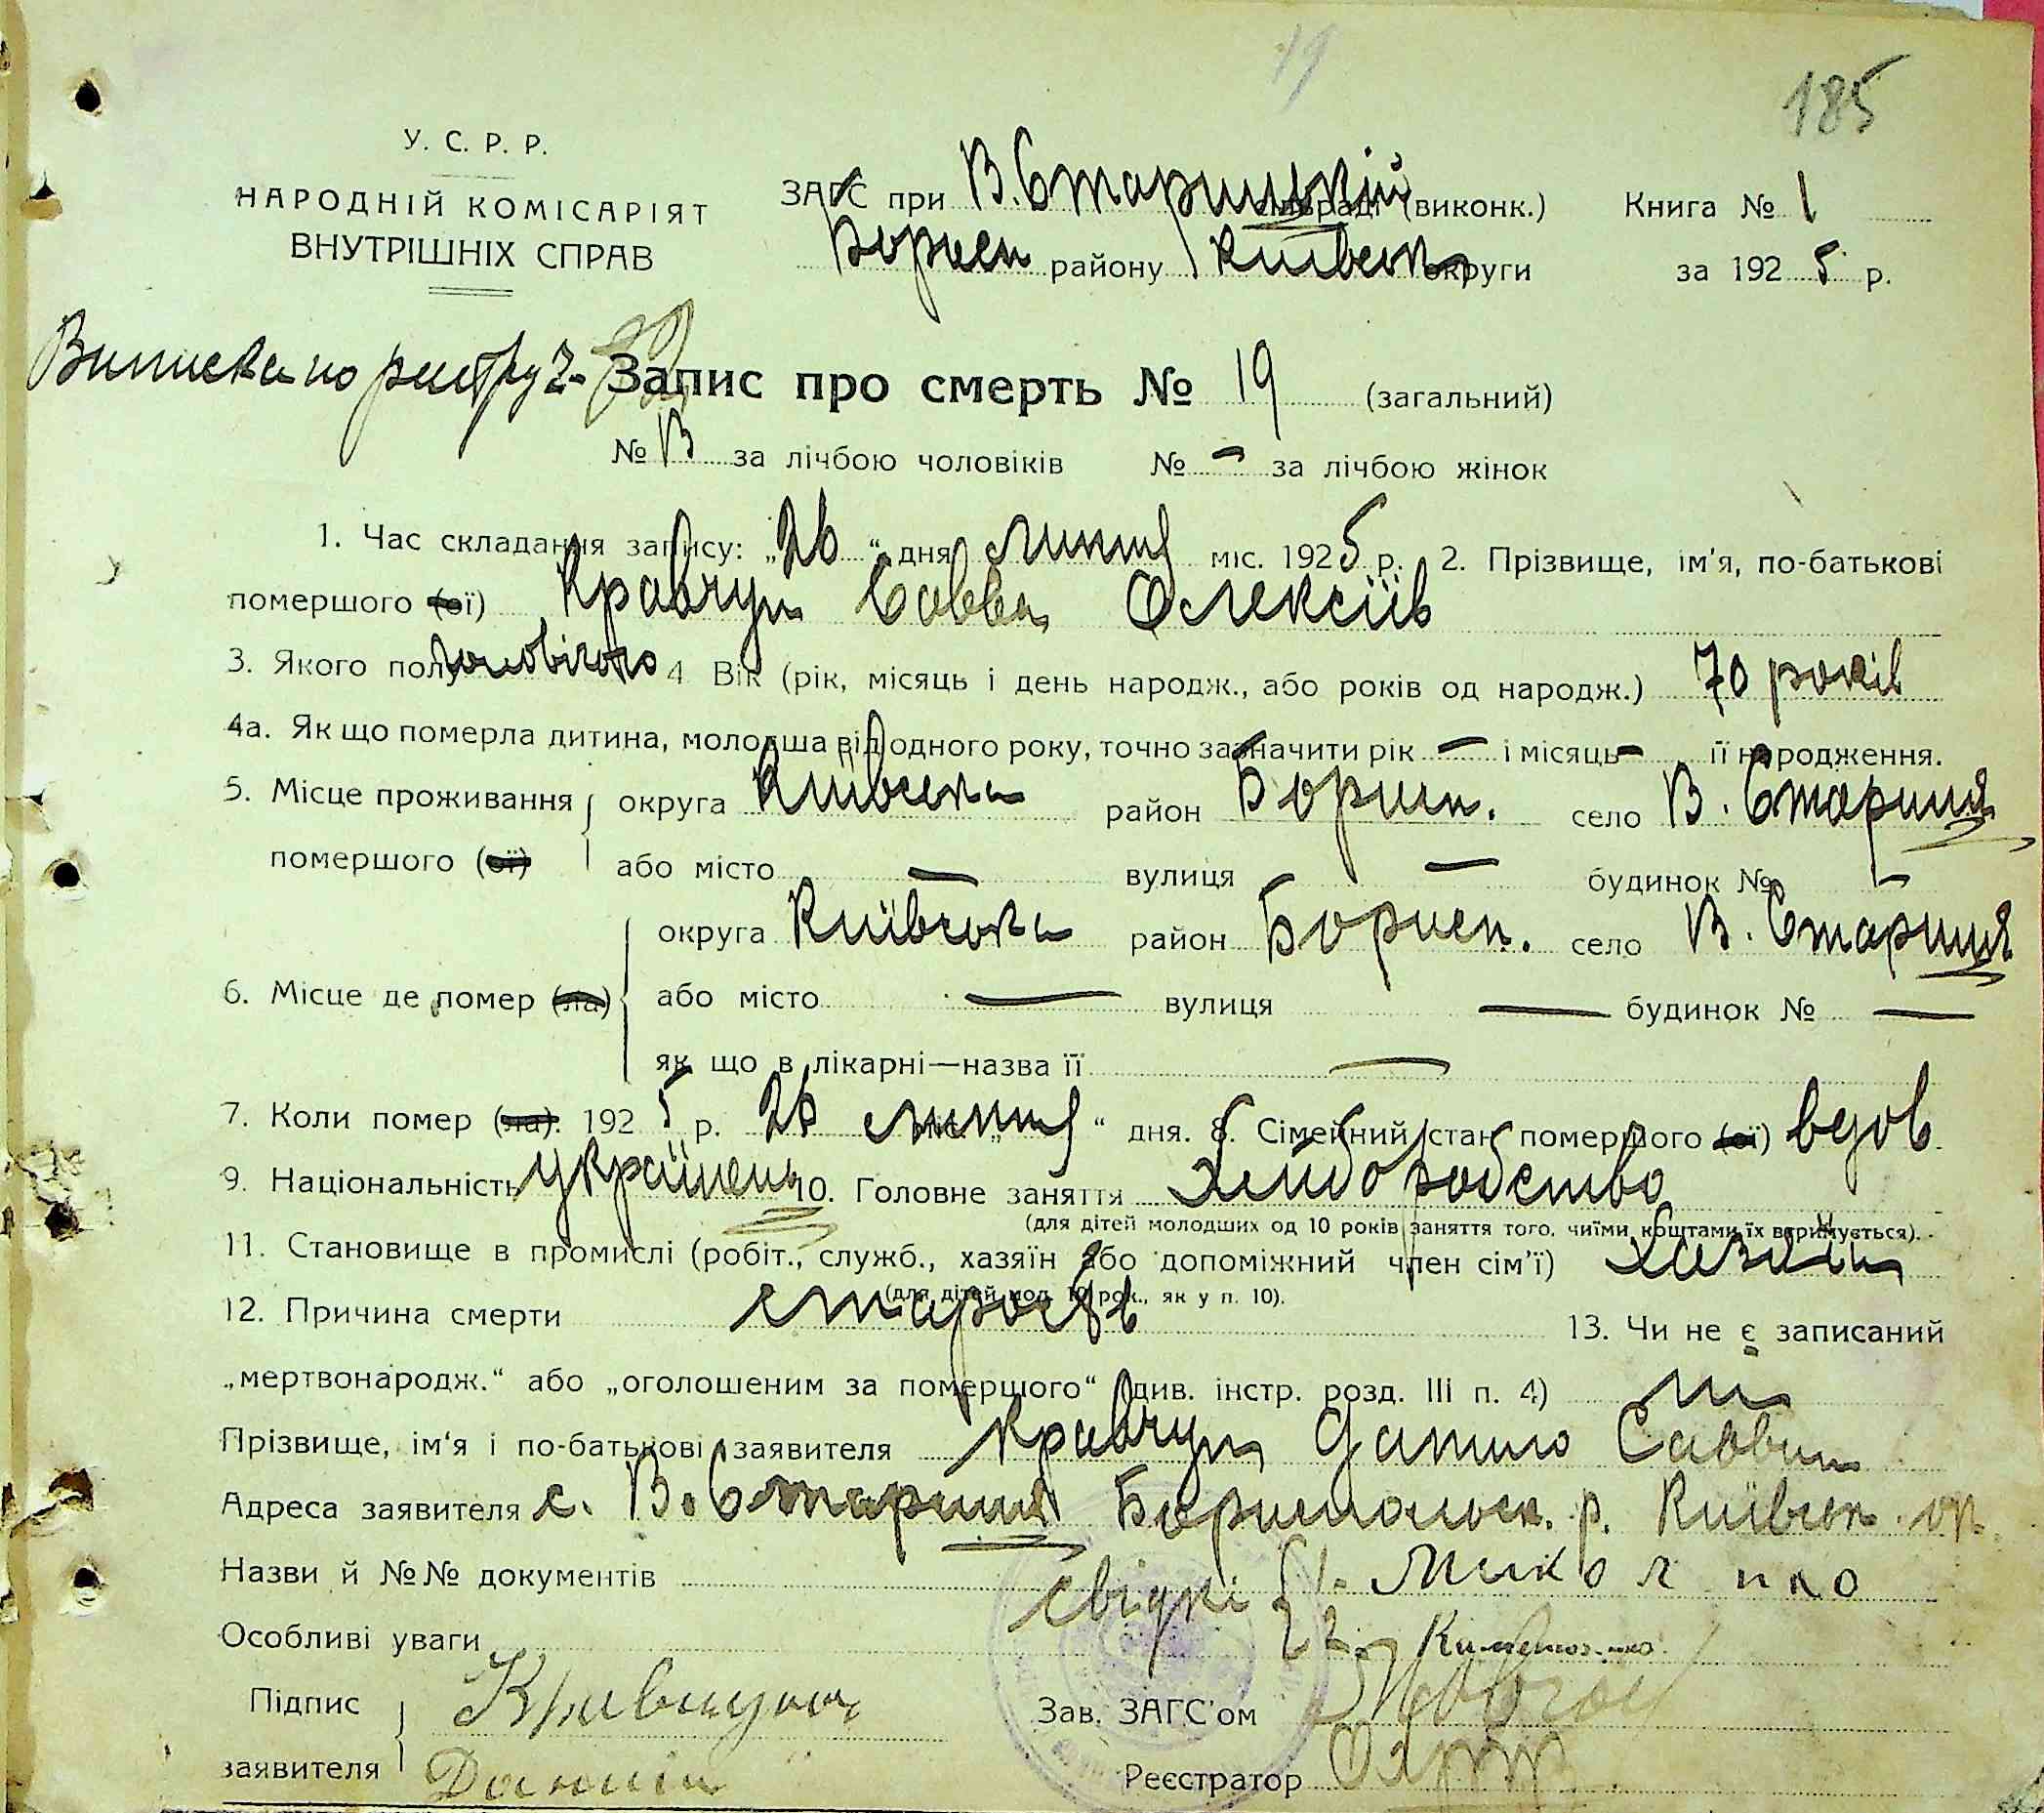 19
185
У. С. Р. Р.
НАРОДНІЙ КОМІСАРІЯТ
ВНУТРІШНІХ СПРАВ
ЗАГС при В. Старицькій сільраді (виконк.) Книга № 1
Борисп району Київськ округи за 1925 р.
Виписка по
Запис про смерть № 19 (загальний)
№ 13 за лічбою чоловіків № — за лічбою жінок
1. Час складання запису: „26“ дня липня міс. 1925 р. 2. Прізвище, ім'я, по-батькові
помершого (ої) Кравчун Савва Олексіїв
3. Якого полу чоловічого 4 Вік (рік, місяць і день народж., або років од народж.) 70 років
4а. Як що померла дитина, молодша від одного року, точно зазначити рік — і місяць — її народження.
5. Місце проживання помершого (ої) округа Київська район Борисп. село В. Стариця
або місто — вулиця — будинок № —
6. Місце де помер (ла) округа Київська район Борисп. село В. Стариця
або місто — вулиця — будинок № —
як що в лікарні—назва її —
7. Коли помер (ла). 1925 р. 26 липня “ дня. 8. Сімейний стан помершого (ої) вдов
9. Національність українець 10. Головне заняття хліборобство
(для дітей молодших од 10 років заняття того, чиїми коштами їх втримується).
11. Становище в промислі (робіт., служб., хазяїн або допоміжний член сім'ї) хазяїн
(для дітей мол. 10 рок., як у п. 10).
12. Причина смерти старість 13. Чи не є записаний
„мертвонародж.“ або „оголошеним за помершого“ (див. інстр. розд. III п. 4) ні
Прізвище, ім'я і по-батькові заявителя Кравчун Данило Саввич
Адреса заявителя с. В. Стариця Бориспольск. р. Київськ. ок.
Назви й №№ документів
свідки 1.
Особливі уваги 2.
Підпис заявителя Данііл
Зав. ЗАГС'ом
Реєстратор